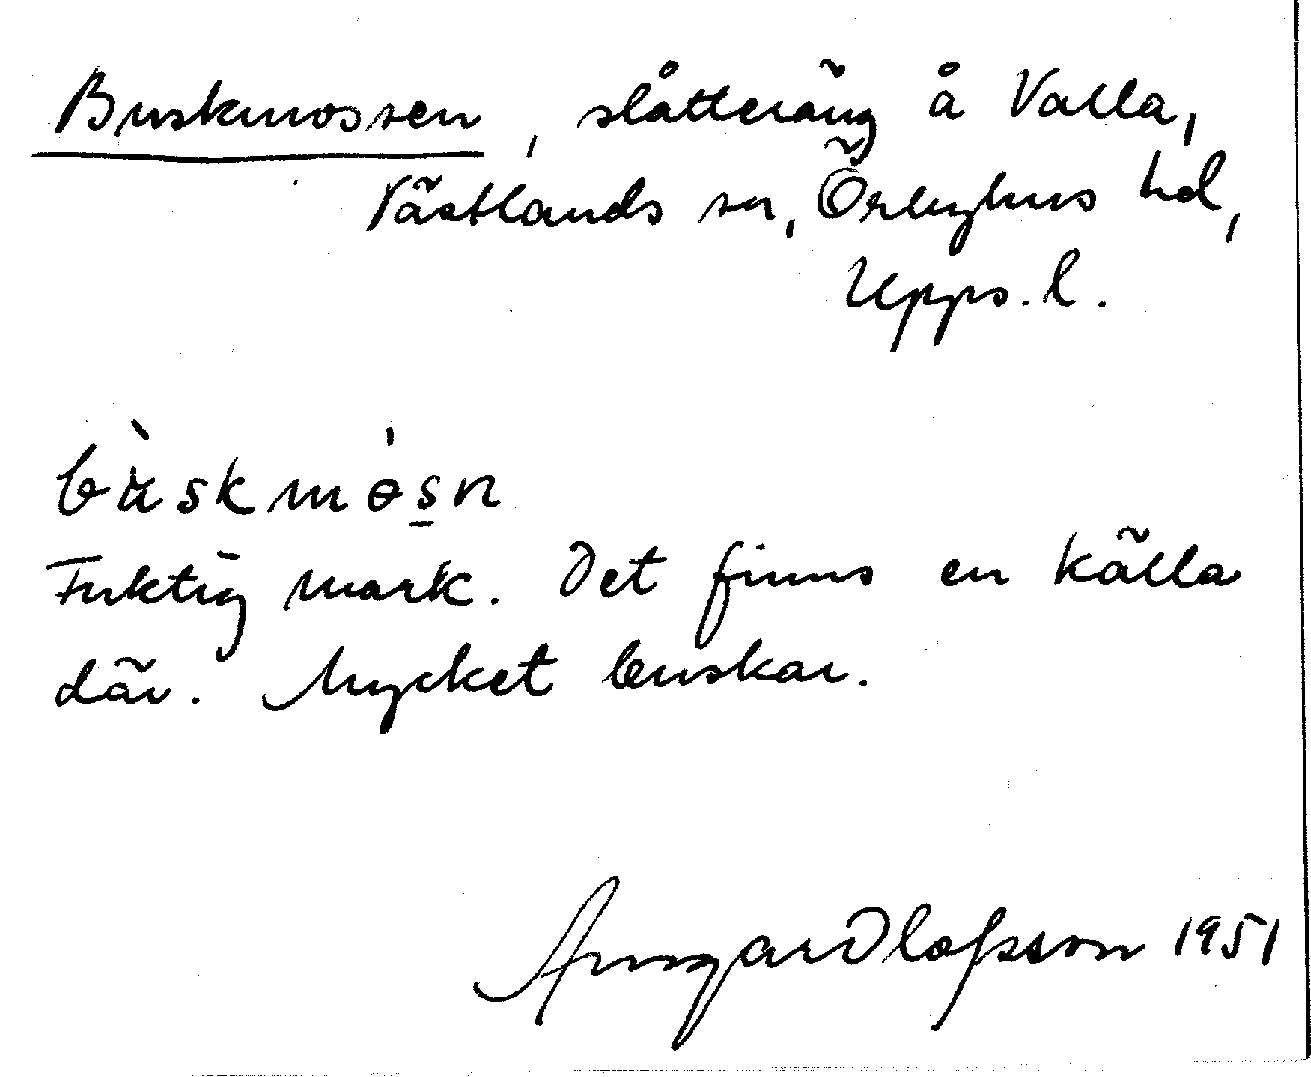 Buskmossen, slåtteräng å Valla,
Västlands sn, Örbyhus hd,
Upps. l.
bùskmósn
Fuktig mark. Det finns en källa
där. Mycket buskar.
Olofsson 1951